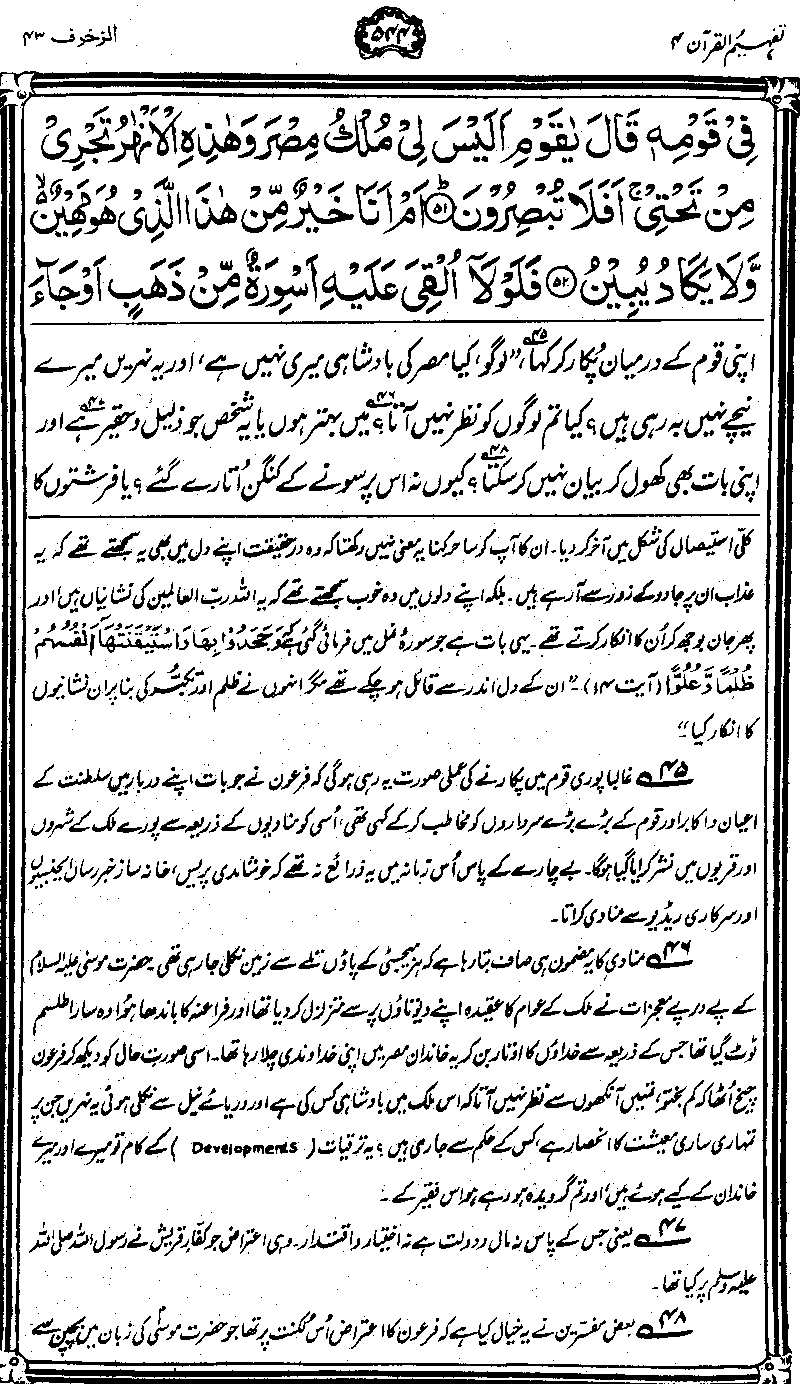 تفہیم القرآن ۴
۵۴۴
الزخرف ۴۳
فِیْ قَوْمِهٖ قَالَ یٰقَوْمِ اَلَیْسَ لِیْ مُلْكُ مِصْرَ وَهٰذِهِ الْاَنْهٰرُ تَجْرِیْ
مِنْ تَحْتِیْ ۚ اَفَلَا تُبْصِرُوْنَ ؕ﴿۵۱﴾ اَمْ اَنَا خَیْرٌ مِّنْ هٰذَا الَّذِیْ هُوَ مَهِیْنٌ ۙ۬
وَّلَا یَكَادُ یُبِیْنُ ﴿۵۲﴾ فَلَوْلَاۤ اُلْقِیَ عَلَیْهِ اَسْوِرَةٌ مِّنْ ذَهَبٍ اَوْ جَآءَ
اپنی قوم کے درمیان پُکار کر کہا،۴۵ ”لوگو، کیا مصر کی بادشاہی میری نہیں ہے، اور یہ نہریں میرے
نیچے نہیں بہ رہی ہیں؟ کیا تم لوگوں کو نظر نہیں آتا؟۴۶ میں بہتر ہوں یا یہ شخص جو ذلیل و حقیر ہے۴۷ اور
اپنی بات بھی کھول کر بیان نہیں کر سکتا؟۴۸ کیوں نہ اس پر سونے کے کنگن اُتارے گئے؟ یا فرشتوں کا
کلّی استیصال کی شکل میں آخر کر دیا۔ ان کا آپ کو ساحر کہنا یہ معنی نہیں رکھتا کہ وہ در حقیقت اپنے دل میں بھی یہ سمجھتے تھے کہ یہ
عذاب ان پر جادو کے زور سے آرہے ہیں۔ بلکہ اپنے دلوں میں وہ خوب سمجھتے تھے کہ یہ اللہ ربّ العالمین کی نشانیاں ہیں، اور
پھر جان بوجھ کر اُن کا انکار کرتے تھے۔ یہی بات ہے جو سورۂ نمل میں فرمائی گئی ہے وَجَحَدُوْا بِهَا وَاسْتَیْقَنَتْهَاۤ اَنْفُسُهُمْ
ظُلْمًا وَّعُلُوًّا (آیت ۱۴)۔ ”ان کے دل اندر سے قائل ہو چکے تھے مگر انہوں نے ظلم اور تکبّر کی بنا پر ان نشانیوں
کا انکار کیا“
۴۵ غالباً پوری قوم میں پکارنے کی عملی صورت یہ رہی ہوگی کہ فرعون نے جو بات اپنے دربار میں سلطنت کے
اعیان و اکابر اور قوم کے بڑے بڑے سرداروں کو مخاطب کر کے کہی تھی، اُسی کو منادیوں کے ذریعہ سے پورے ملک کے شہروں
اور قریوں میں نشر کرایا گیا ہوگا۔ بے چارے کے پاس اُس زمانہ میں یہ ذرائع نہ تھے کہ خوشامدی پریس، خانہ ساز خبر رساں ایجنسیوں
اور سرکاری ریڈیو سے منادی کراتا۔
۴۶ منادی کا یہ مضمون ہی صاف بتا رہا ہے کہ ہز میجسٹی کے پاؤں تلے سے زمین نکلی جا رہی تھی۔ حضرت موسیٰ علیہ السلام
کے پے در پے معجزات نے ملک کے عوام کا عقیدہ اپنے دیوتاؤں پر سے متزلزل کر دیا تھا اور فراعنہ کا باندھا ہوا وہ سارا طلسم
ٹوٹ گیا تھا جس کے ذریعہ سے خداؤں کا اوتار بن کر یہ خاندان مصر میں اپنی خداوندی چلا رہا تھا۔ اسی صورتِ حال کو دیکھ کر فرعون
چیخ اُٹھا کہ کم بختو، تمہیں آنکھوں سے نظر نہیں آتا کہ اس ملک میں بادشاہی کس کی ہے اور دریائے نیل سے نکلی ہوئی یہ نہریں جن پر
تمہاری ساری معیشت کا انحصار ہے، کس کے حکم سے جاری ہیں؟ یہ ترقیات (Developments) کے کام تو میرے اور میرے
خاندان کے کیے ہوئے ہیں، اور تم گرویدہ ہو رہے ہو اس فقیر کے۔
۴۷ یعنی جس کے پاس نہ مال و دولت ہے نہ اختیار و اقتدار۔ وہی اعتراض جو کفّارِ قریش نے رسول اللہ صلی اللہ
علیہ وسلم پر کیا تھا۔
۴۸ بعض مفسّرین نے یہ خیال کیا ہے کہ فرعون کا اعتراض اُس لکنت پر تھا جو حضرت موسیٰؑ کی زبان میں بچپن سے